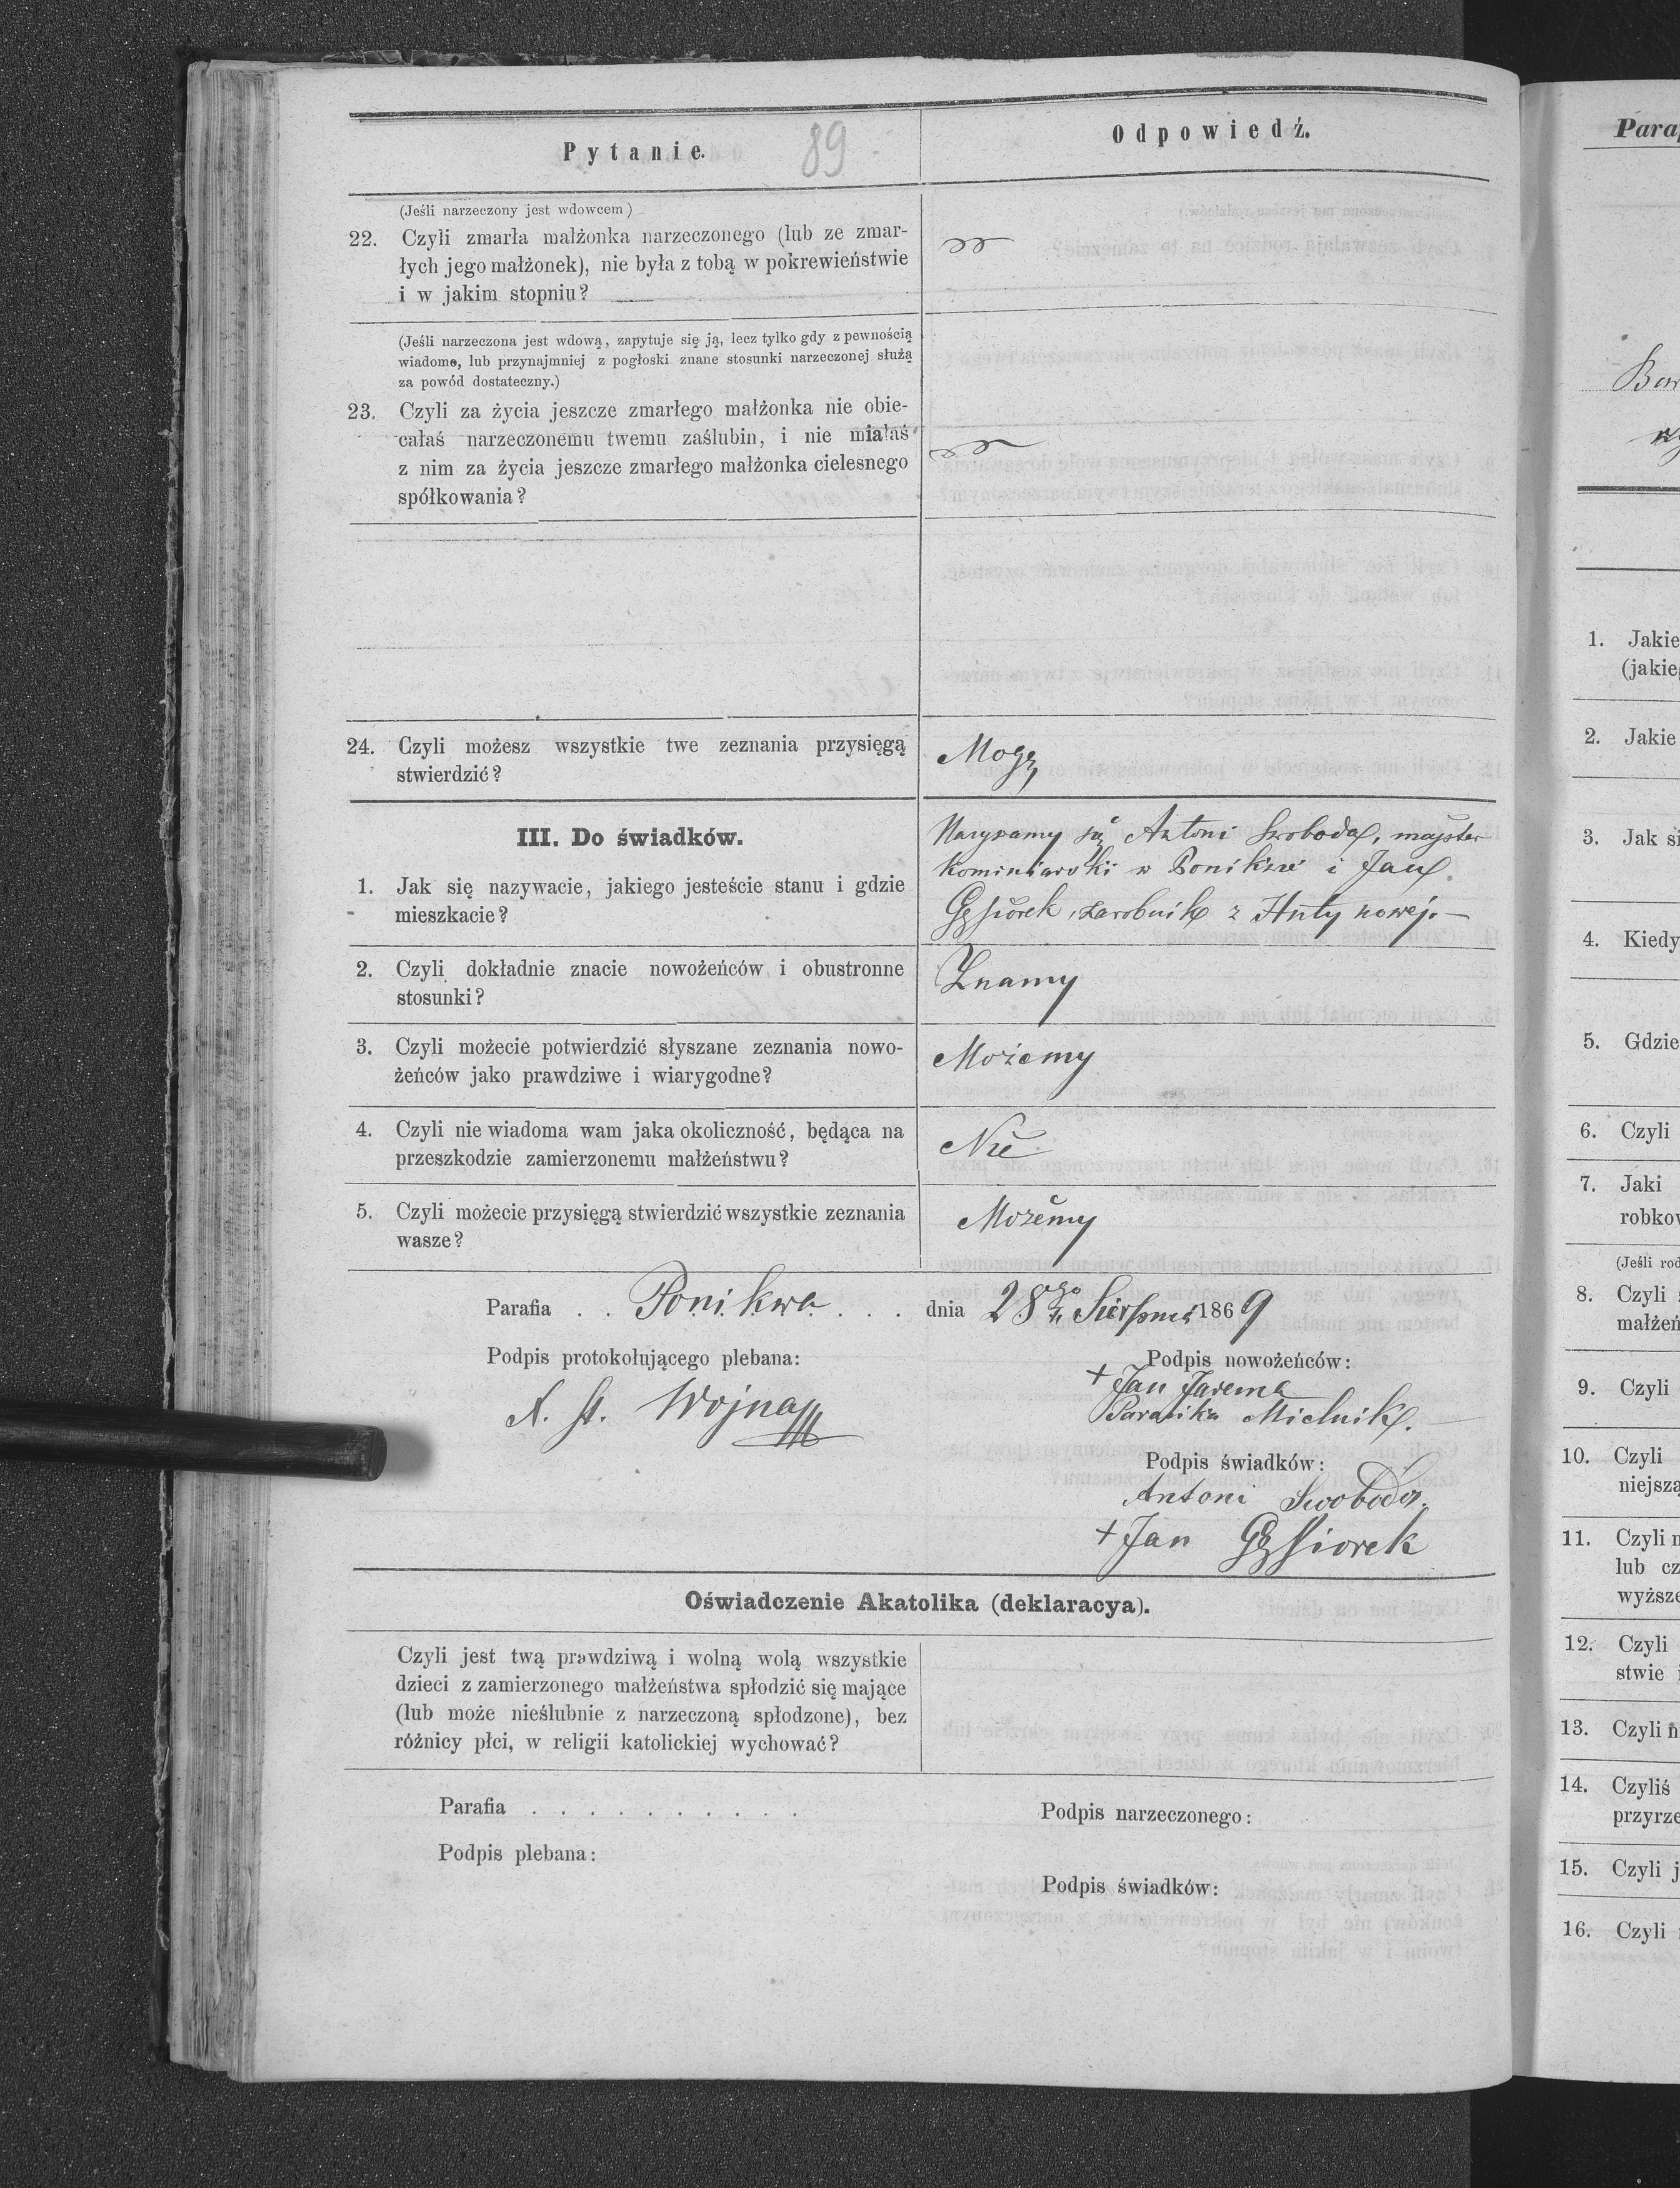 Pytanie.
89
Odpowiedź.
(Jeśli narzeczony jest wdowcem)
22. Czyli zmarła małżonka narzeczonego (lub ze zmar-
łych jego małżonek), nie była z tobą w pokrewieństwie
i w jakim stopniu?
(Jeśli narzeczona jest wdową, zapytuje się ją, lecz tylko gdy z pewnością
wiadome, lub przynajmniej z pogłoski znane stosunki narzeczonej służą
za powód dostateczny.)
23. Czyli za życia jeszcze zmarłego małżonka nie obie-
całaś narzeczonemu twemu zaślubin, i nie miałaś
z nim za życia jeszcze zmarłego małżonka cielesnego
spółkowania?
24. Czyli możesz wszystkie twe zeznania przysięgą
stwierdzić?
Mogę
III. Do świadków.
1. Jak się nazywacie, jakiego jesteście stanu i gdzie
mieszkacie?
Nazywamy się Antoni Swoboda, majster
kominiarski w Ponikwie i Jan
Gęsiorek, zarobnik z Huty nowej.—
2. Czyli dokładnie znacie nowożeńców i obustronne
stosunki?
Znamy
3. Czyli możecie potwierdzić słyszane zeznania nowo-
żeńców jako prawdziwe i wiarygodne?
Możemy
4. Czyli nie wiadoma wam jaka okoliczność, będąca na
przeszkodzie zamierzonemu małżeństwu?
Nie
5. Czyli możecie przysięgą stwierdzić wszystkie zeznania
wasze?
Możemy
Parafia . . Ponikwa . . . dnia 28go Sierpnia 1869
Podpis protokołującego plebana:
Podpis nowożeńców:
+ Jan Jarema
Paraśka Mielnik.
Wojna
Podpis świadków:
Antoni Swoboda.
+ Jan Gęsiorek
Oświadczenie Akatolika (deklaracya).
Czyli jest twą prawdziwą i wolną wolą wszystkie
dzieci z zamierzonego małżeństwa spłodzić się mające
(lub może nieślubnie z narzeczoną spłodzone), bez
różnicy płci, w religii katolickiej wychować?
Parafia . . . . . . . . . .
Podpis narzeczonego:
Podpis plebana:
Podpis świadków:
Para
1. Jakie
(jakie
2. Jakie
3. Jak si
4. Kiedy
5. Gdzie
6. Czyli
7. Jaki
robkow
(Jeśli rod
8. Czyli
małżeń
9. Czyli
10. Czyli
niejszą
11. Czyli n
lub cz
wyższe
12. Czyli
stwie i
13. Czyli n
14. Czyliś
przyrze
15. Czyli j
16. Czyli